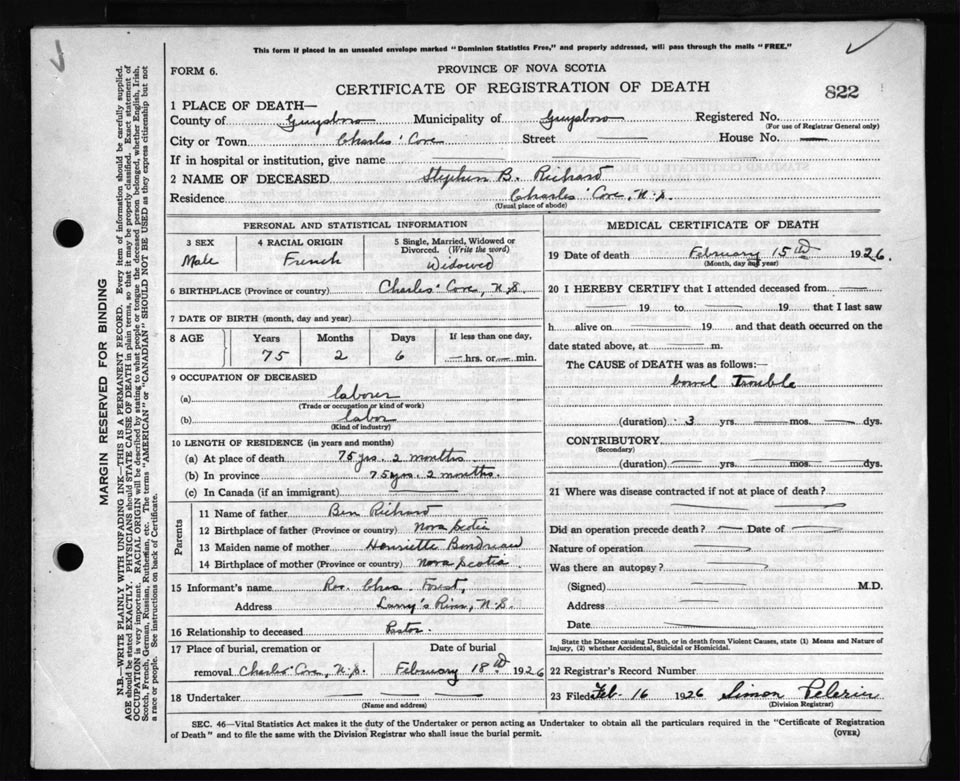 This form if placed in an unsealed envelope marked "Dominion Statistics Free," and properly addressed, will pass through the mails "FREE."
FORM 6.
PROVINCE OF NOVA SCOTIA
CERTIFICATE OF REGISTRATION OF DEATH
822
1 PLACE OF DEATH—
County of Guysboro Municipality of Guysboro Registered No.
(For use of Registrar General only)
City or Town Charles' Cove Street — House No. —
If in hospital or institution, give name
2 NAME OF DECEASED Stephen B. Richard
Residence Charles' Cove, N.S.
(Usual place of abode)
PERSONAL AND STATISTICAL INFORMATION
3 SEX 4 RACIAL ORIGIN 5 Single, Married, Widowed or Divorced. (Write the word)
Male French Widowed
6 BIRTHPLACE (Province or country) Charles' Cove, N.S.
7 DATE OF BIRTH (month, day and year)
8 AGE Years Months Days If less than one day,
75 2 6 — hrs. or — min.
9 OCCUPATION OF DECEASED
(a) laborer
(Trade or occupation or kind of work)
(b) labor
(Kind of industry)
10 LENGTH OF RESIDENCE (in years and months)
(a) At place of death 75 yrs. 2 months.
(b) In province 75 yrs. 2 months.
(c) In Canada (if an immigrant) —
Parents
11 Name of father Ben Richard
12 Birthplace of father (Province or country) Nova Scotia
13 Maiden name of mother Henriette Boudreau
14 Birthplace of mother (Province or country) Nova Scotia
15 Informant's name Rev. Chas. Forest,
Address Larry's River, N.S.
16 Relationship to deceased Pastor.
17 Place of burial, cremation or Date of burial
removal Charles' Cove, N.S. February 18th 1926
18 Undertaker —
(Name and address)
MEDICAL CERTIFICATE OF DEATH
19 Date of death February 15th 1926.
(Month, day and year)
20 I HEREBY CERTIFY that I attended deceased from —
— 19 — to — 19 — that I last saw
h — alive on — 19 — and that death occurred on the
date stated above, at — m.
The CAUSE of DEATH was as follows:—
bowel trouble
(duration) 3 yrs. — mos. — dys.
CONTRIBUTORY —
(Secondary)
(duration) — yrs. — mos. — dys.
21 Where was disease contracted if not at place of death?
Did an operation precede death? — Date of —
Nature of operation —
Was there an autopsy? —
(Signed) — M.D.
Address —
Date —
State the Disease causing Death, or in death from Violent Causes, state (1) Means and Nature of
Injury, (2) whether Accidental, Suicidal or Homicidal.
22 Registrar's Record Number
23 Filed Feb. 16 1926 Simon Pelerin
(Division Registrar)
SEC. 46—Vital Statistics Act makes it the duty of the Undertaker or person acting as Undertaker to obtain all the particulars required in the "Certificate of Registration
of Death" and to file the same with the Division Registrar who shall issue the burial permit.
(OVER)
MARGIN RESERVED FOR BINDING
N.B.—WRITE PLAINLY WITH UNFADING INK—THIS IS A PERMANENT RECORD. Every item of information should be carefully supplied.
AGE should be stated EXACTLY. PHYSICIANS should STATE CAUSE OF DEATH in plain terms, so that it may be properly classified. Exact statement of
OCCUPATION is very important. RACIAL ORIGIN will be described by stating to what people or tongue the deceased person belonged, whether English, Irish,
Scotch, French, German, Russian, Ruthenian, etc. The terms "AMERICAN" or "CANADIAN" SHOULD NOT BE USED as they express citizenship but not
a race or people. See instructions on back of Certificate.